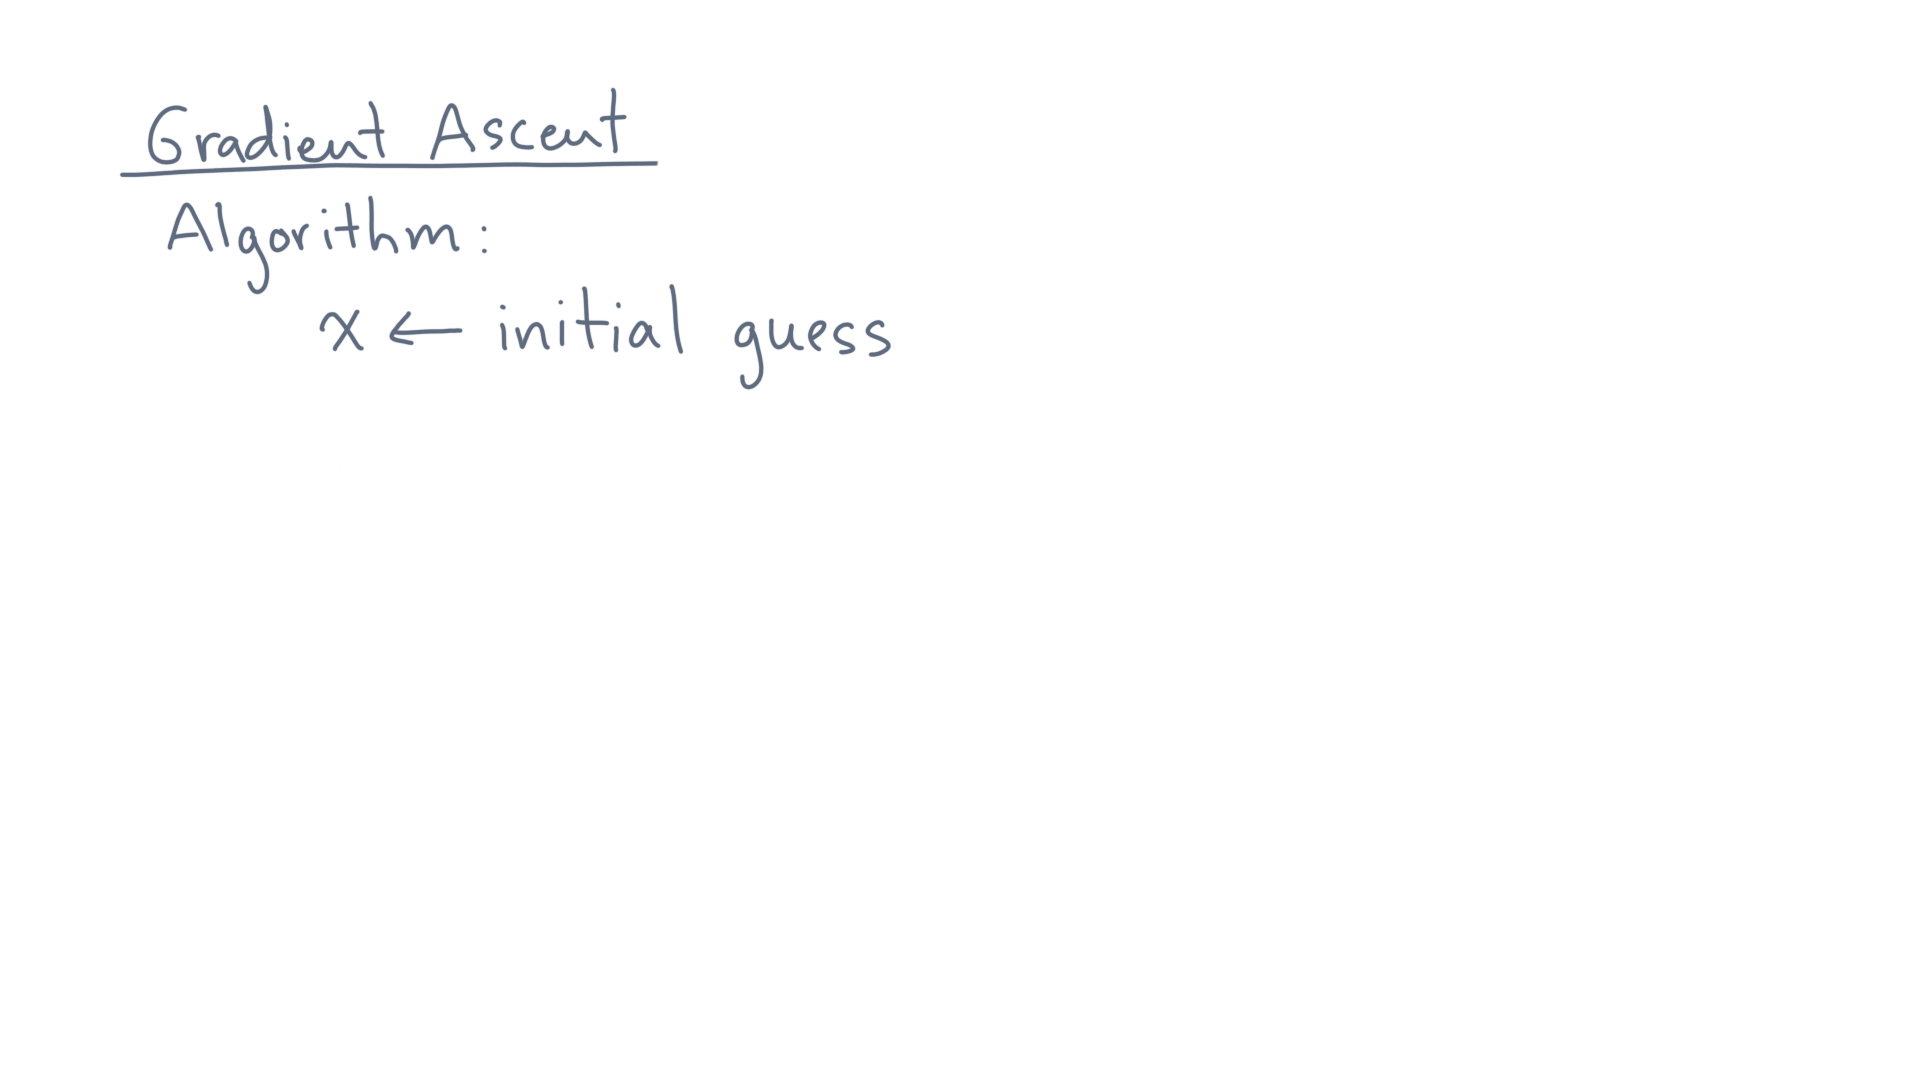 Gradient Ascent
Algorithm:
x ← initial guess